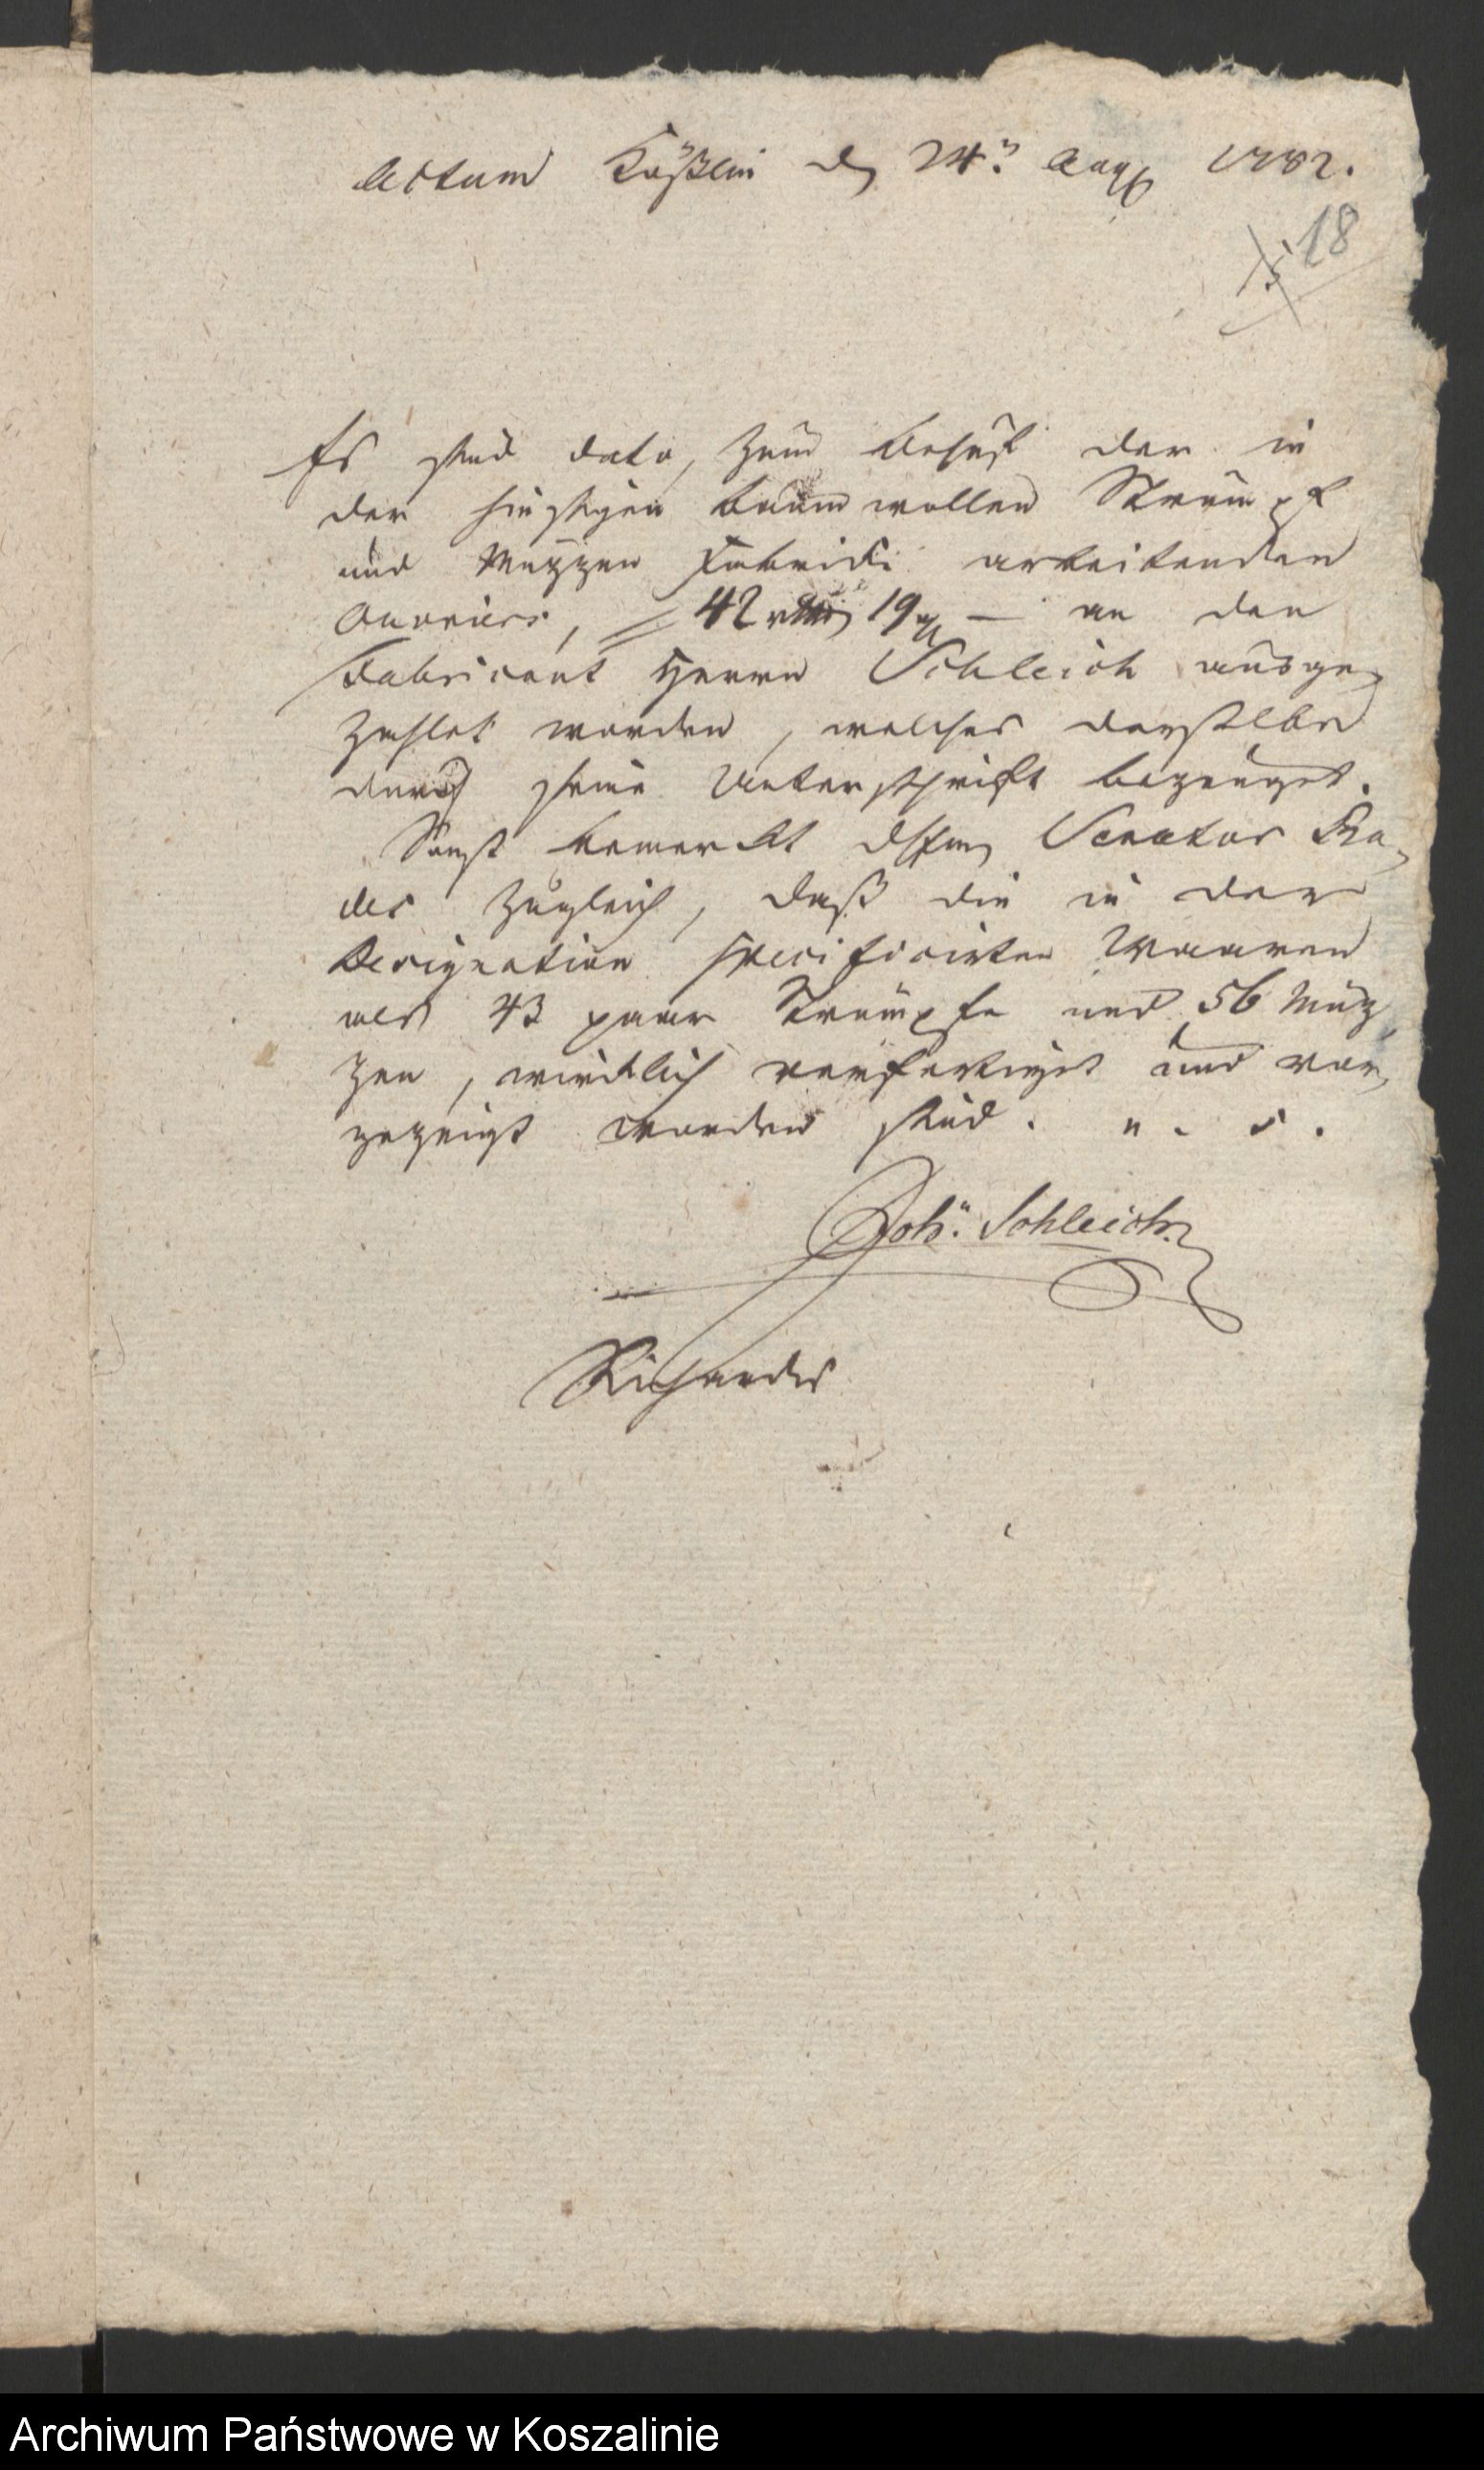 Actum Cößlin d 24n Aug 1782.
18
Es sind dato, zum Behuf der in
der hiesigen baumwollen Strumpf
und Müzzen Fabrick arbeitenden
Ouvriers, 42 rthlr 19 g — an den
Fabricant Herrn Schleich ausge-
zahlet worden, welches derselbe
durch seine Unterschrifft bezeuget.
Sonst bemerckt Senator
zugleich, daß die in der
Designation specificirten Waaren
als 43 paar Strümpfe und 56 Müz-
zen, wircklich verferttiget und vor-
gezeigt worden sind. u. s.
John. Schleich.
Richardis
Archiwum Państwowe w Koszalinie